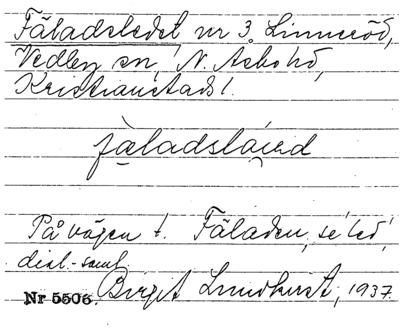 Fäladsledet nr 3, Linneröd,
Vedby sn, N. Åsbo hd,
Kristianstads l.
fæladslá̀ed
På vägen t. Fäladen, se 'led',
dial.-saml.
Nr 5506. Birgit Lundkvist, 1937.